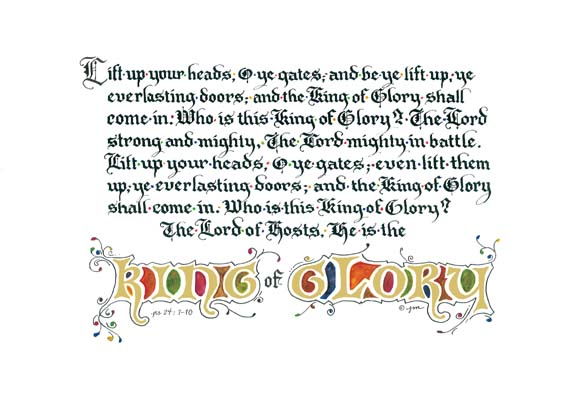 Lift up your heads, O ye gates; and be ye lift up, ye
everlasting doors; and the King of Glory shall
come in. Who is this King of Glory? The Lord
strong and mighty, The Lord mighty in battle.
Lift up your heads, O ye gates; even lift them
up, ye everlasting doors; and the King of Glory
shall come in. Who is this King of Glory?
The Lord of Hosts, He is the
KING of GLORY
ps. 24 : 7-10
©